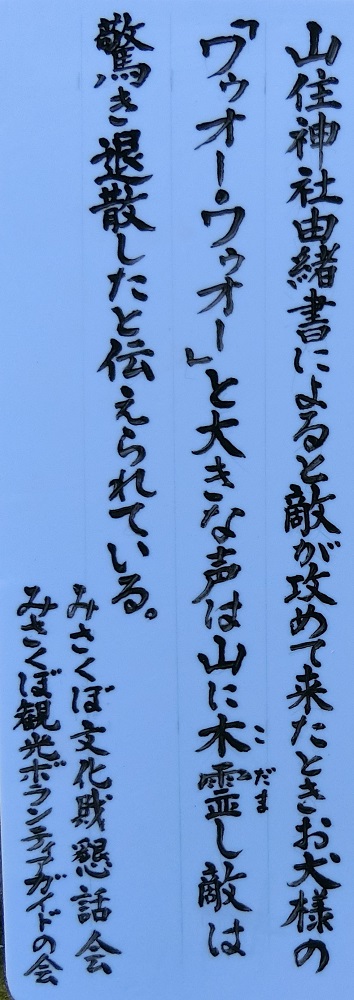 山住神社由緒書によると敵が攻めて来たときお犬様の
「ワゥオー・ワゥオー」と大きな声は山に木霊し敵は
こだま
驚き退散したと伝えられている。
みさくぼ文化財懇話会
みさくぼ観光ボランティアガイドの会